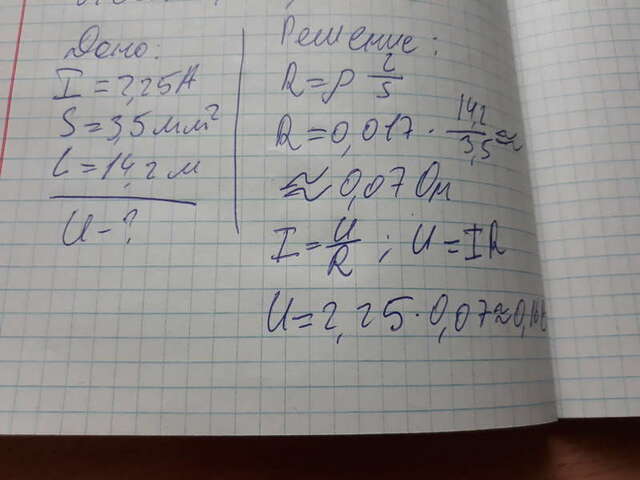 Дано:
I = 2,25A
S = 3,5 мм²
L = 14,2 м
U - ?
Решение:
R = ρ l/s
R = 0,017 · 14,2/3,5 ≈
≈ 0,07 Ом
I = U/R ; U = IR
U = 2,25 · 0,07 ≈ 0,16